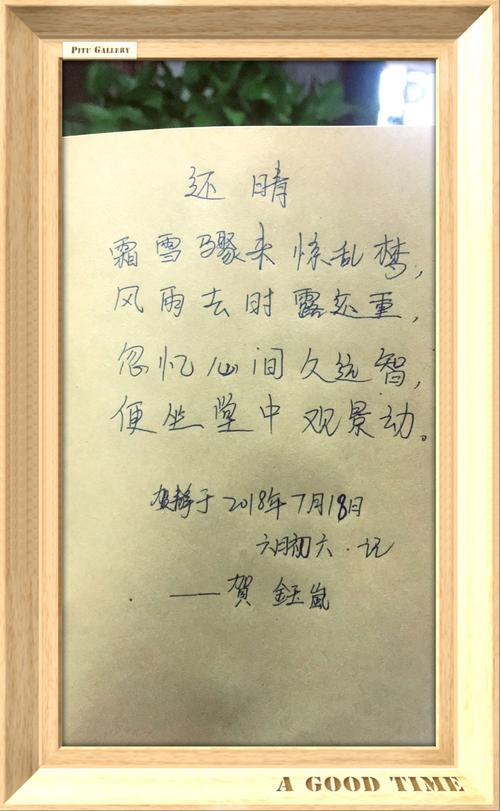 PITU GALLERY
还晴
霜雪骤来惊乱梦,
风雨去时露还重,
忽忆心间久远智,
便坐堂中观景动。
贺静于2018年7月18日
六月初六·记
——贺 鈺嵐
A GOOD TIME